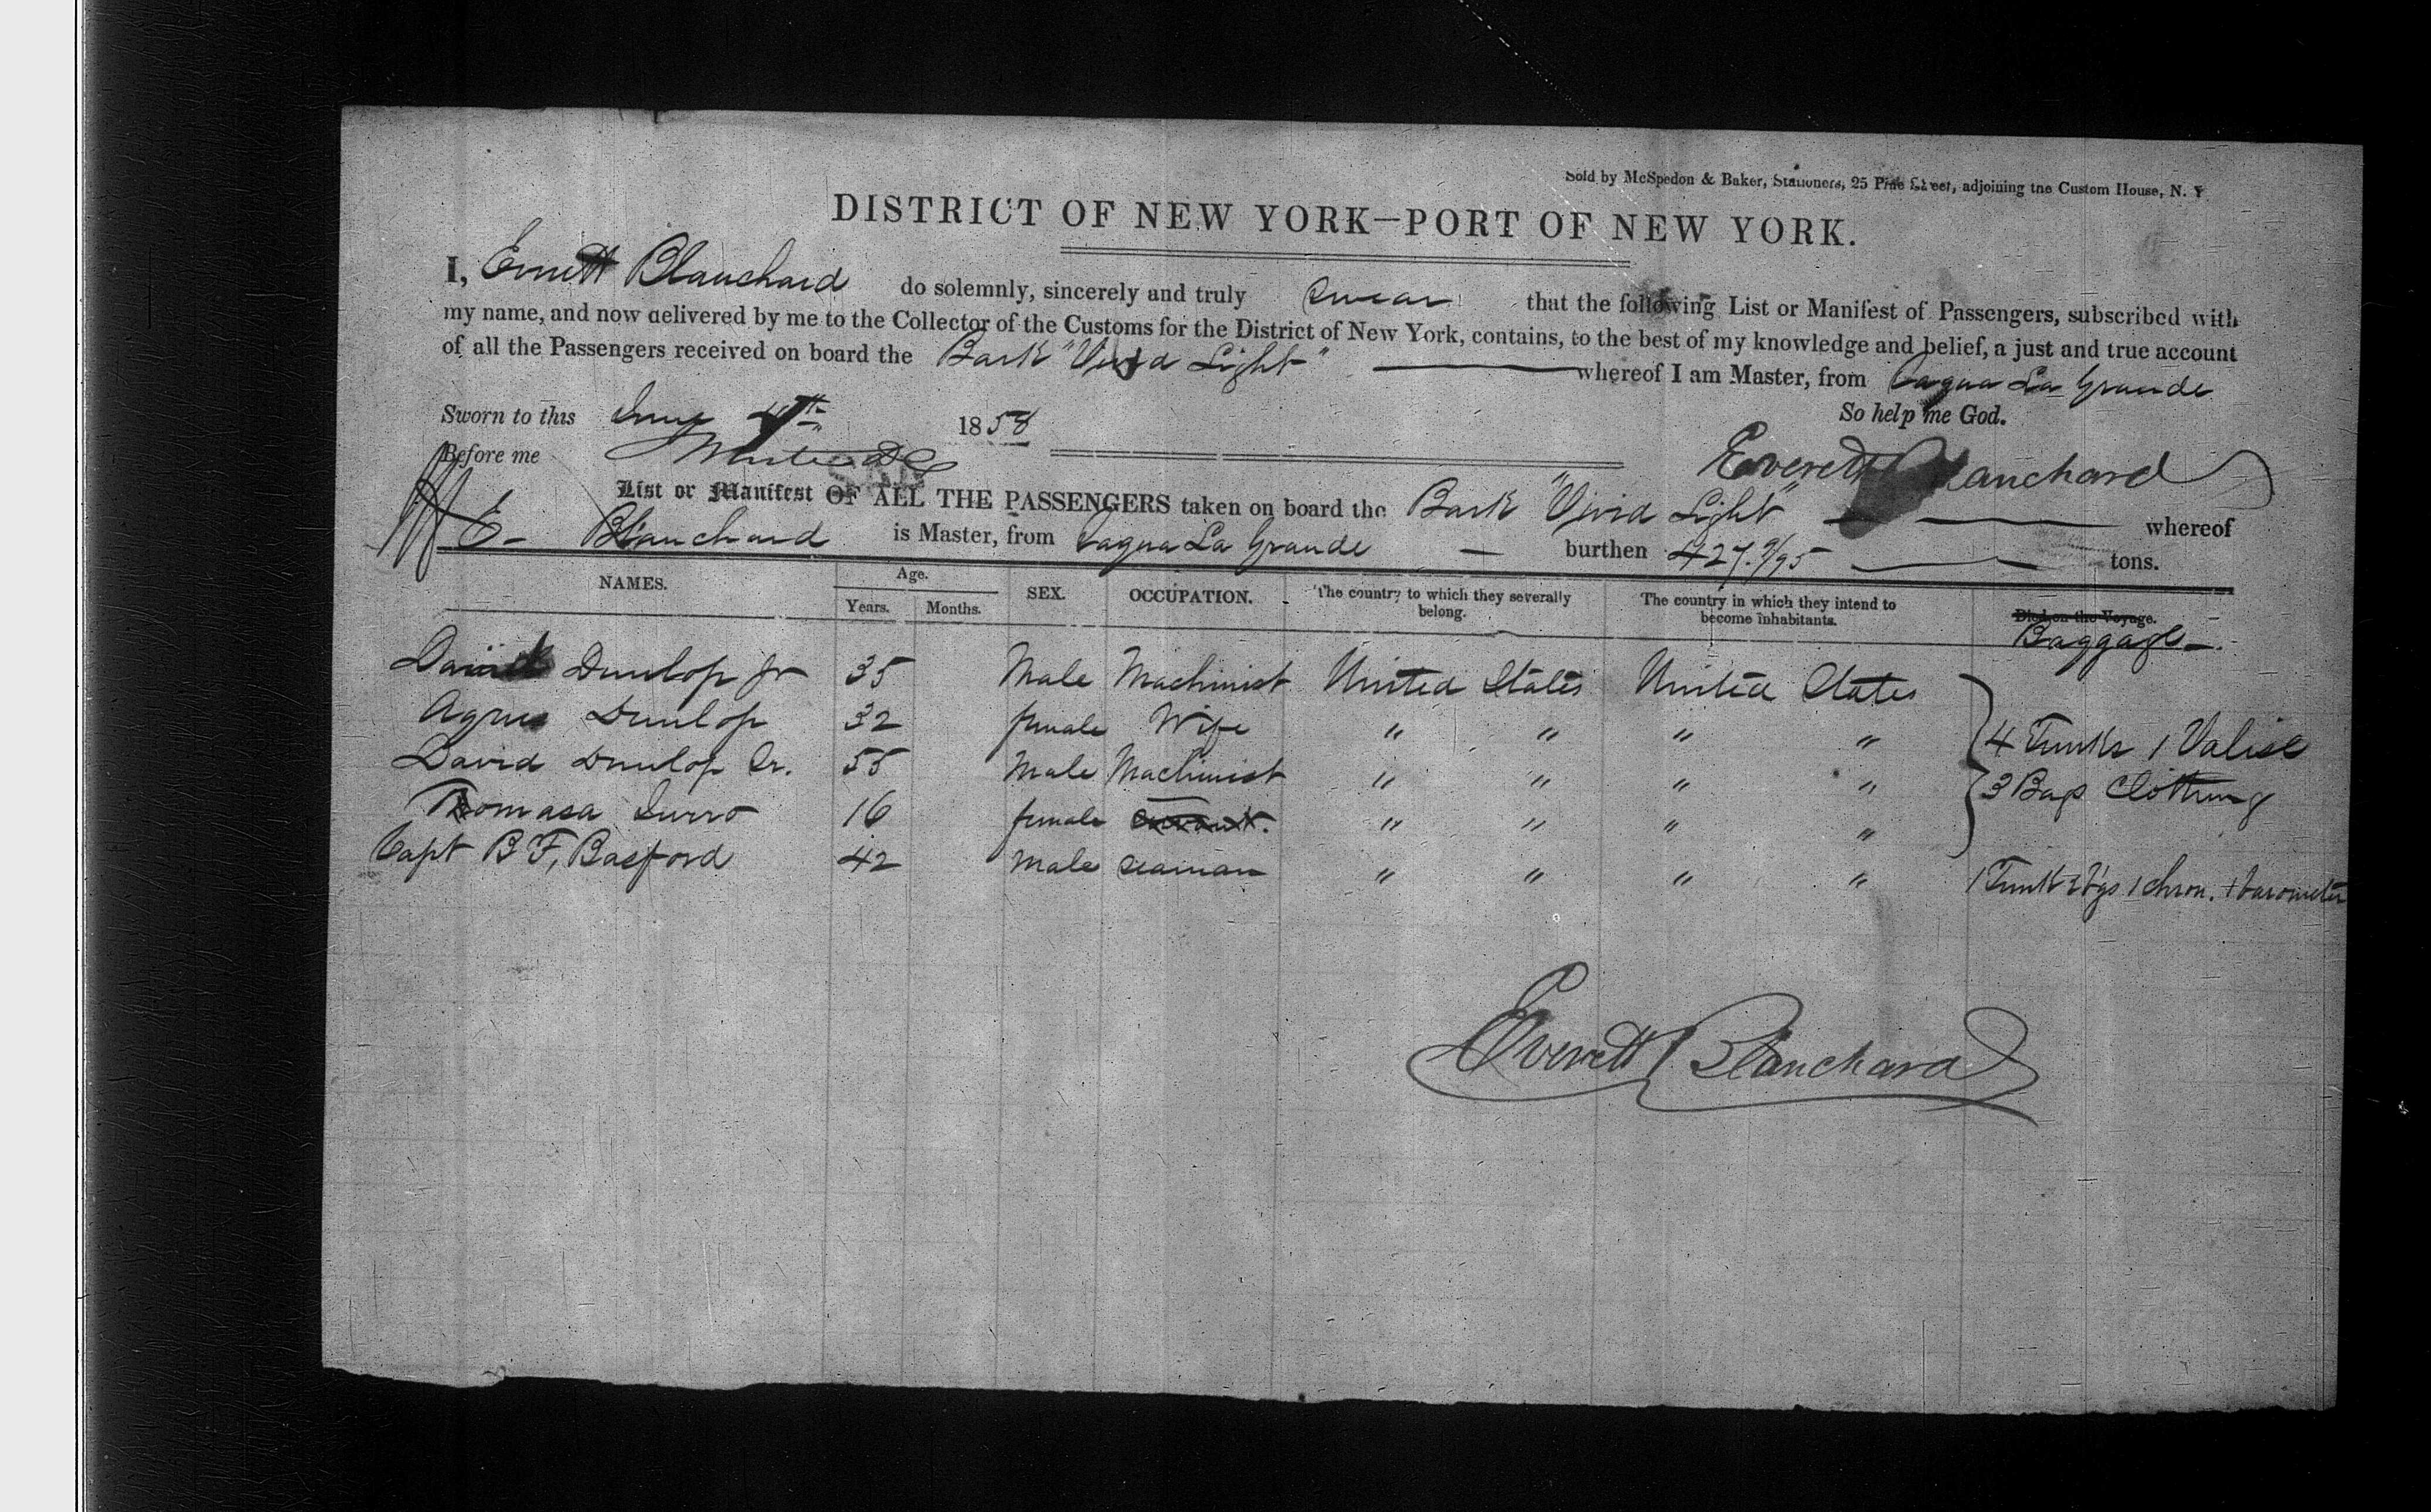 Sold by McSpedon & Baker, Stationers, 25 Pine Street, adjoining the Custom House, N. Y
DISTRICT OF NEW YORK—PORT OF NEW YORK.
I, Everett Blanchard do solemnly, sincerely and truly swear that the following List or Manifest of Passengers, subscribed with
my name, and now delivered by me to the Collector of the Customs for the District of New York, contains, to the best of my knowledge and belief, a just and true account
of all the Passengers received on board the Bark "Vivid Light" whereof I am Master, from Sagua La Grande
Sworn to this June 4th 1858 So help me God.
Before me Everett Blanchard
List or Manifest OF ALL THE PASSENGERS taken on board the Bark "Vivid Light" whereof
E- Blanchard is Master, from Sagua La Grande — burthen 427. 9/95 tons.
NAMES. Age. Years. Months. SEX. OCCUPATION. The country to which they severally belong. The country in which they intend to become inhabitants. Died on the Voyage.
Baggage
David Dunlop Jr 35 Male Machinist United States United States
Agnes Dunlop 32 female Wife " " " " 4 Trunks 1 Valise
David Dunlop Sr. 55 Male Machinist " " " " 3 Bags Clothing
Thomasa 16 female Servant. " " " "
Capt B F, Basford 42 Male Seaman " " " " 1 Trunk 2 b'gs 1 chron. 1 barometer
Everett Blanchard